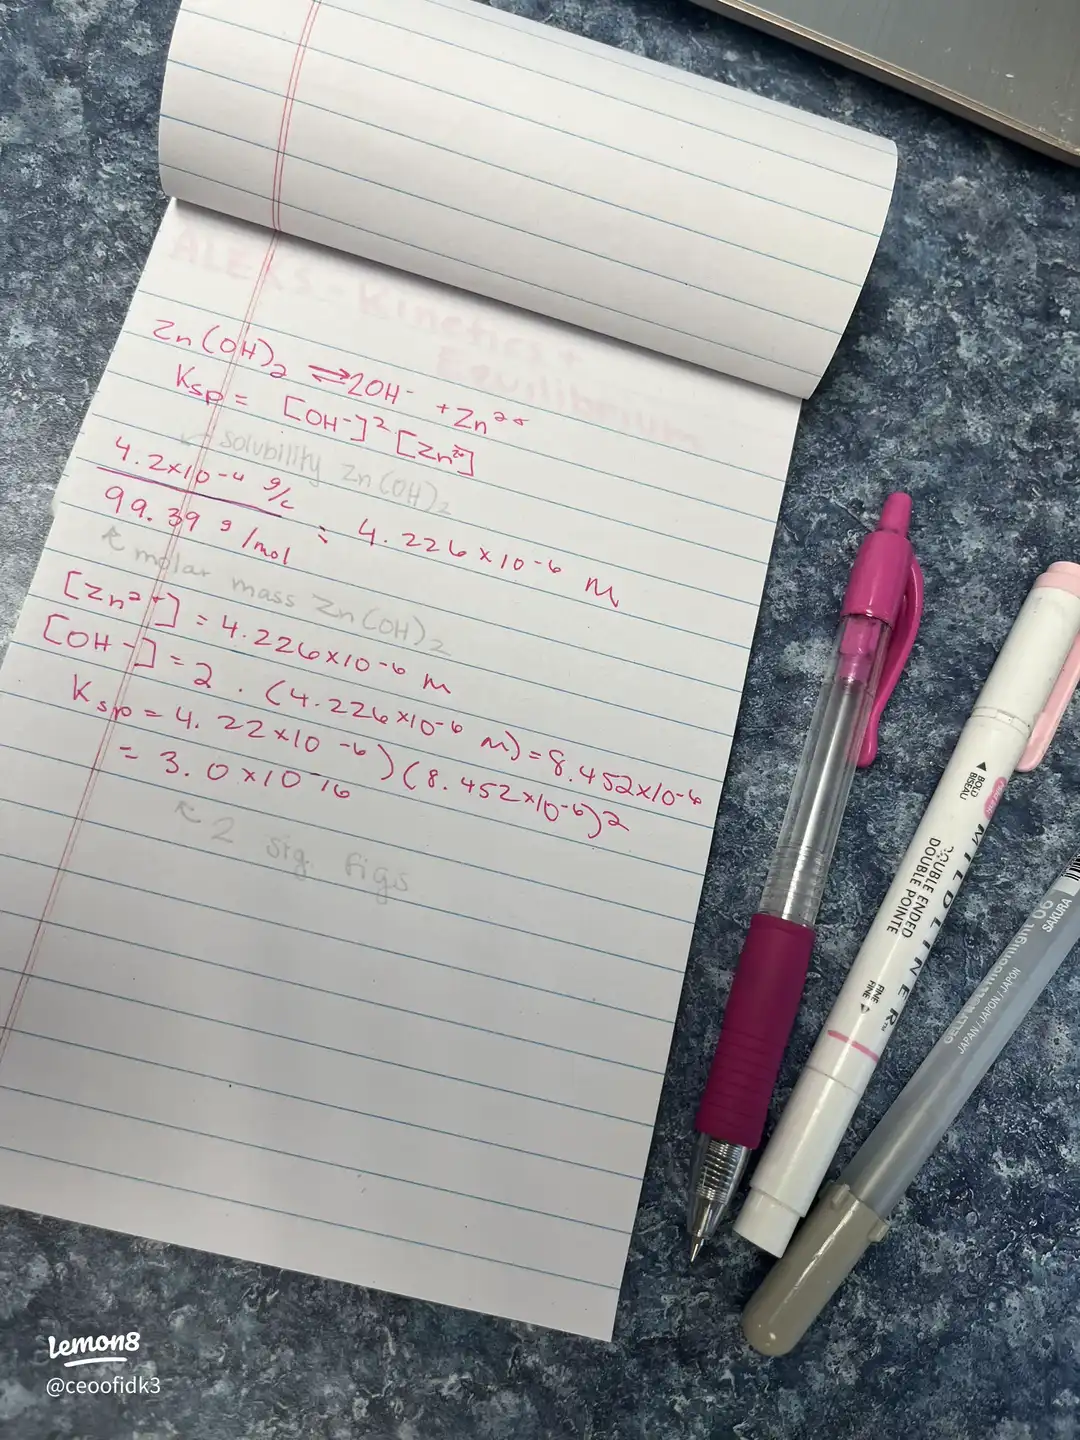 ALEKS - Kinetics +
Equilibrium
Zn(OH)₂ ⇌ 2OH⁻ + Zn²⁺
Ksp = [OH⁻]² [Zn²⁺]
↙ solubility Zn(OH)₂
4.2×10⁻⁴ g/L
99.39 g/mol = 4.226×10⁻⁶ M
↖ molar mass Zn(OH)₂
[Zn²⁺] = 4.226×10⁻⁶ M
[OH⁻] = 2 · (4.226×10⁻⁶ M) = 8.452×10⁻⁶
Ksp = 4.22×10⁻⁶)(8.452×10⁻⁶)²
= 3.0×10⁻¹⁶
↖ 2 sig. figs
BOLD
BISEAU
MILDLINER™
DOUBLE ENDED
DOUBLE POINTE
FINE
FINE
SAKURA
06
JAPAN / JAPON / JAPÓN
Lemon8
@ceoofidk3